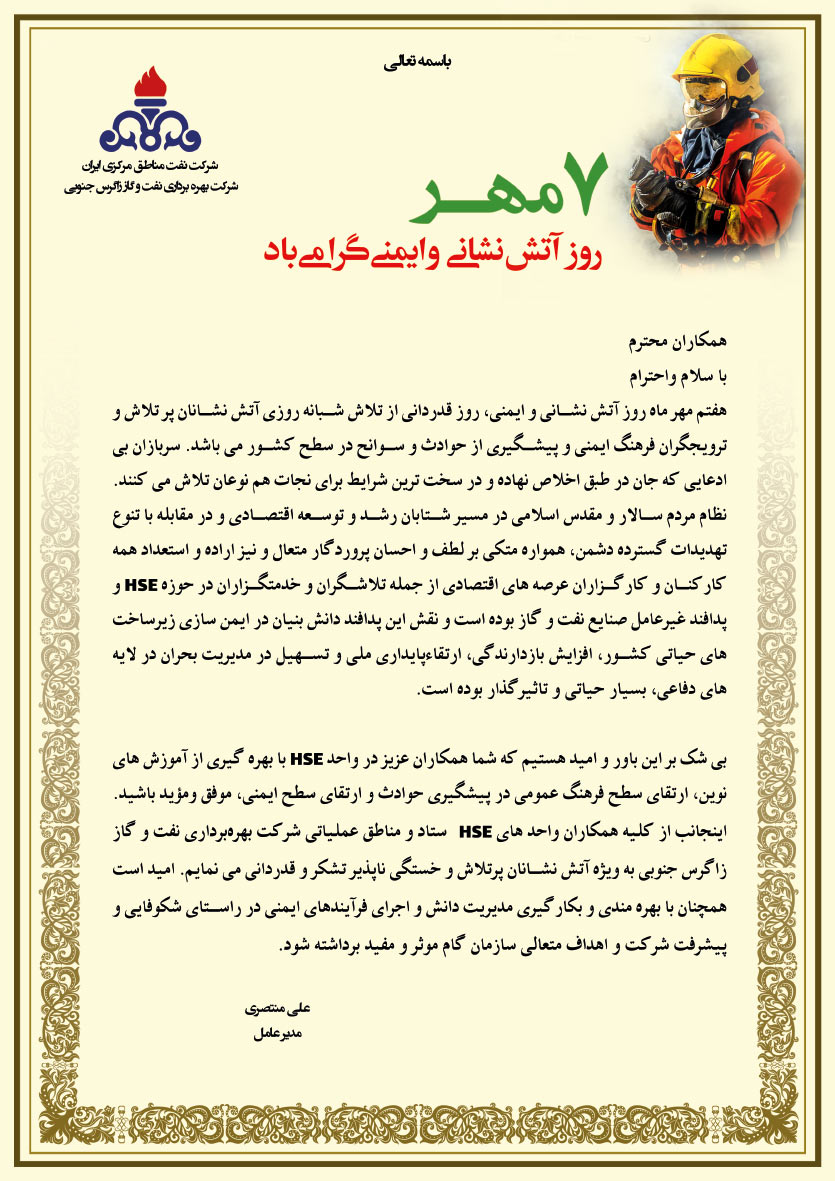 باسمه تعالی
شرکت نفت مناطق مرکزی ایران
شرکت بهره برداری نفت و گاز زاگرس جنوبی
۷ مهر
روز آتش نشانی و ایمنی گرامی باد
همکاران محترم
با سلام واحترام
هفتم مهر ماه روز آتش نشانی و ایمنی، روز قدردانی از تلاش شبانه روزی آتش نشانان پر تلاش و
ترویجگران فرهنگ ایمنی و پیشگیری از حوادث و سوانح در سطح کشور می باشد. سربازان بی
ادعایی که جان در طبق اخلاص نهاده و در سخت ترین شرایط برای نجات هم نوعان تلاش می کنند.
نظام مردم سالار و مقدس اسلامی در مسیر شتابان رشد و توسعه اقتصادی و در مقابله با تنوع
تهدیدات گسترده دشمن، همواره متکی بر لطف و احسان پروردگار متعال و نیز اراده و استعداد همه
کارکنان و کارگزاران عرصه های اقتصادی از جمله تلاشگران و خدمتگزاران در حوزه HSE و
پدافند غیرعامل صنایع نفت و گاز بوده است و نقش این پدافند دانش بنیان در ایمن سازی زیرساخت
های حیاتی کشور، افزایش بازدارندگی، ارتقاءپایداری ملی و تسهیل در مدیریت بحران در لایه
های دفاعی، بسیار حیاتی و تاثیرگذار بوده است.
بی شک بر این باور و امید هستیم که شما همکاران عزیز در واحد HSE با بهره گیری از آموزش های
نوین، ارتقای سطح فرهنگ عمومی در پیشگیری حوادث و ارتقای سطح ایمنی، موفق ومؤید باشید.
اینجانب از کلیه همکاران واحد های HSE ستاد و مناطق عملیاتی شرکت بهره‌برداری نفت و گاز
زاگرس جنوبی به ویژه آتش نشانان پرتلاش و خستگی ناپذیر تشکر و قدردانی می نمایم. امید است
همچنان با بهره مندی و بکارگیری مدیریت دانش و اجرای فرآیندهای ایمنی در راستای شکوفایی و
پیشرفت شرکت و اهداف متعالی سازمان گام موثر و مفید برداشته شود.
علی منتصری
مدیرعامل